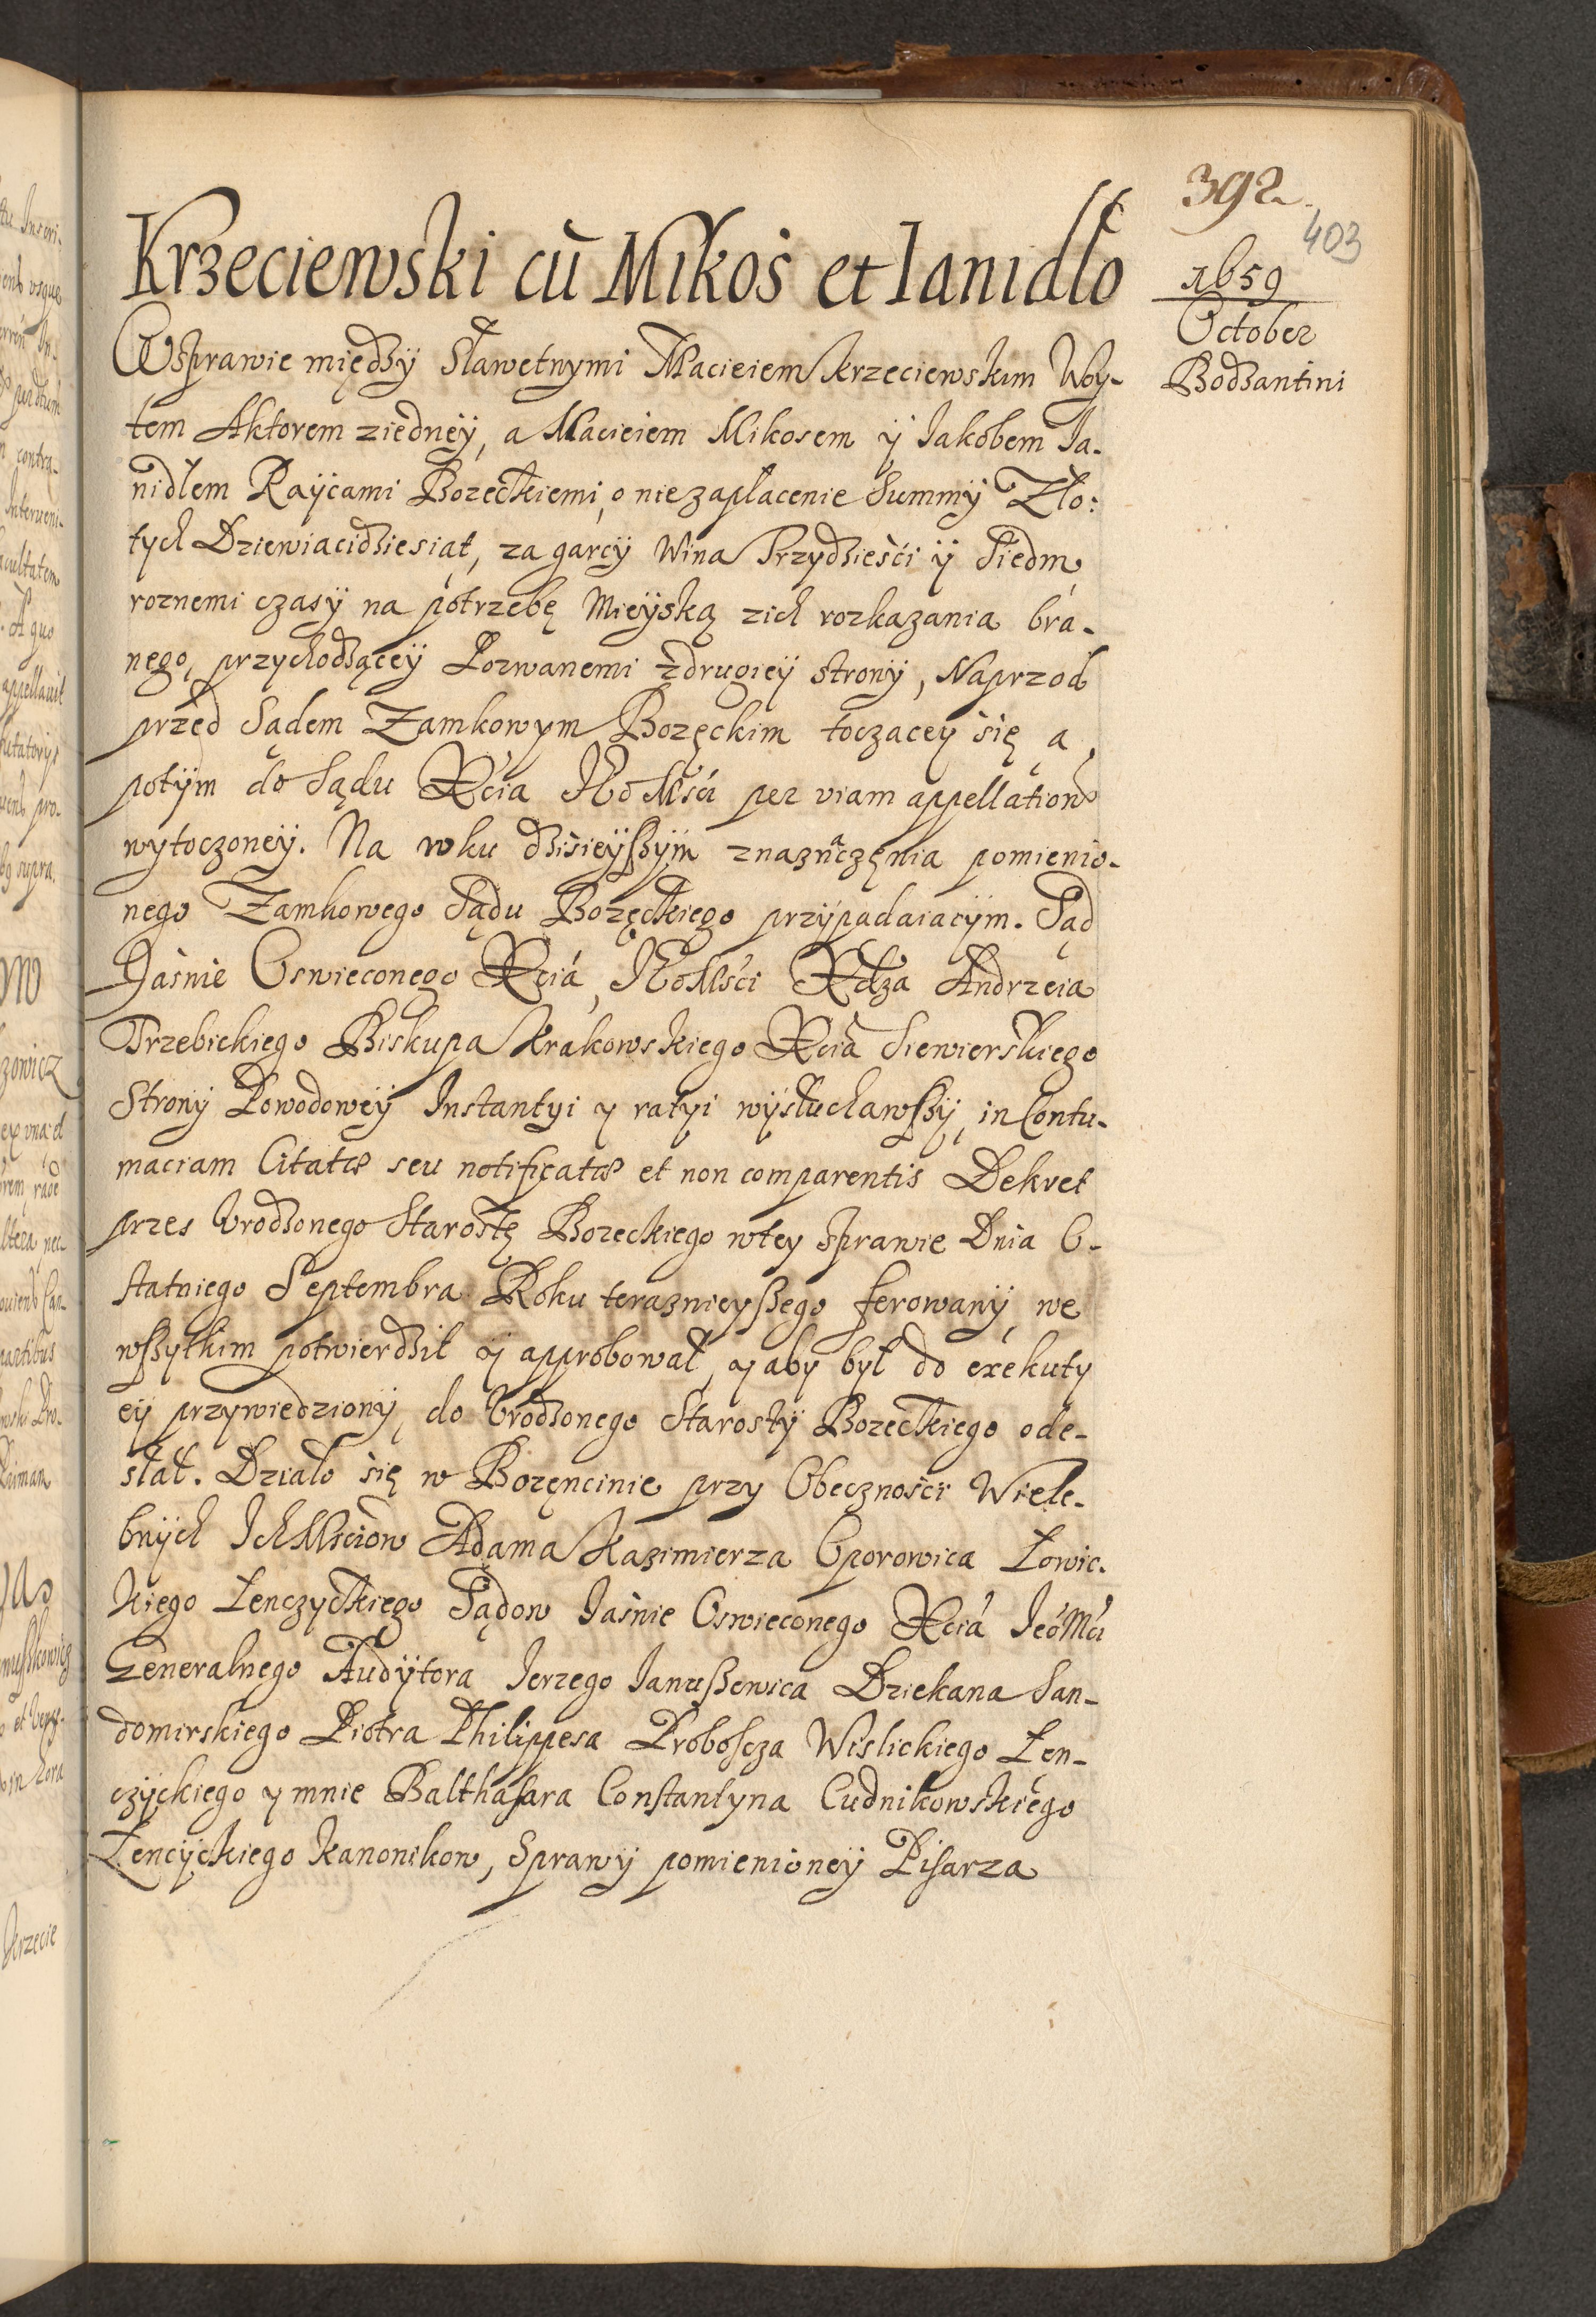 392.
403
1659
October
Bodzantini
Krzeciewski cū Mikos et Ianidło
W Sprawie między Sławetnymi Macieiem Krzeciewskim Woy-
tem Aktorem ziedney, a Macieiem Mikosem y Iakobem Ia-
nidłem Raycami Bozeckiemi, o niezapłacenie Summy Zło:
tych Dziewiacidziesiąt, za garcy Wina Trzydzieści y Siedm,
roznemi czasy na potrzebę Mieyską zich rozkazania bra-
nego, przychodzącey Pozwanemi zdrugiey strony, Naprzod
przed Sądem Zamkowym Bozęckim toczącey się a,
potym do Sądu Xcia IEoMści per viam appellationis
wytoczoney. Na roku dzisieyszym znaznaczęnia pomienio-
nego Zamkowego Sądu Bozęckiego przypadaiacym. Sąd
Jaśnie Oswieconego Xcia, IEoMści Xdza Andrzeia
Trzebickiego Biskupa Krakowskiego Xcia Siewierskiego
Strony Powodowey Instantyi y ratyi wysłuchawszy, in Contu-
maciam Citatæ seu notificatæ et non comparentis Dekret
przes Vrodzonego Starostę Bozeckiego wtey Sprawie Dnia O-
statniego Septembra Roku terazniejszego ferowany, we
wszytkim potwierdził y approbował, y aby był do exekuty
ey przywiedziony, do Vrodzonego Starosty Bozeckiego ode-
słał. Działo się w Bozęncinie przy Obecznosci Wiele-
bnych IchMsciow Adama Kazimierza Oporowica Łowic-
kiego Łenczyckiego Sądow Iaśnie Oswieconego Xcia IeoMći
Generalnego Audytora Ierzego Ianuszewica Dziekana San-
domirskiego Piotra Philippesa Proboscza Wislickiego Łen-
czyckiego y mnie Balthasara Constantyna Cudnikowskiego
Łencyckiego Kanonikow, Sprawy pomienioney Pisarza